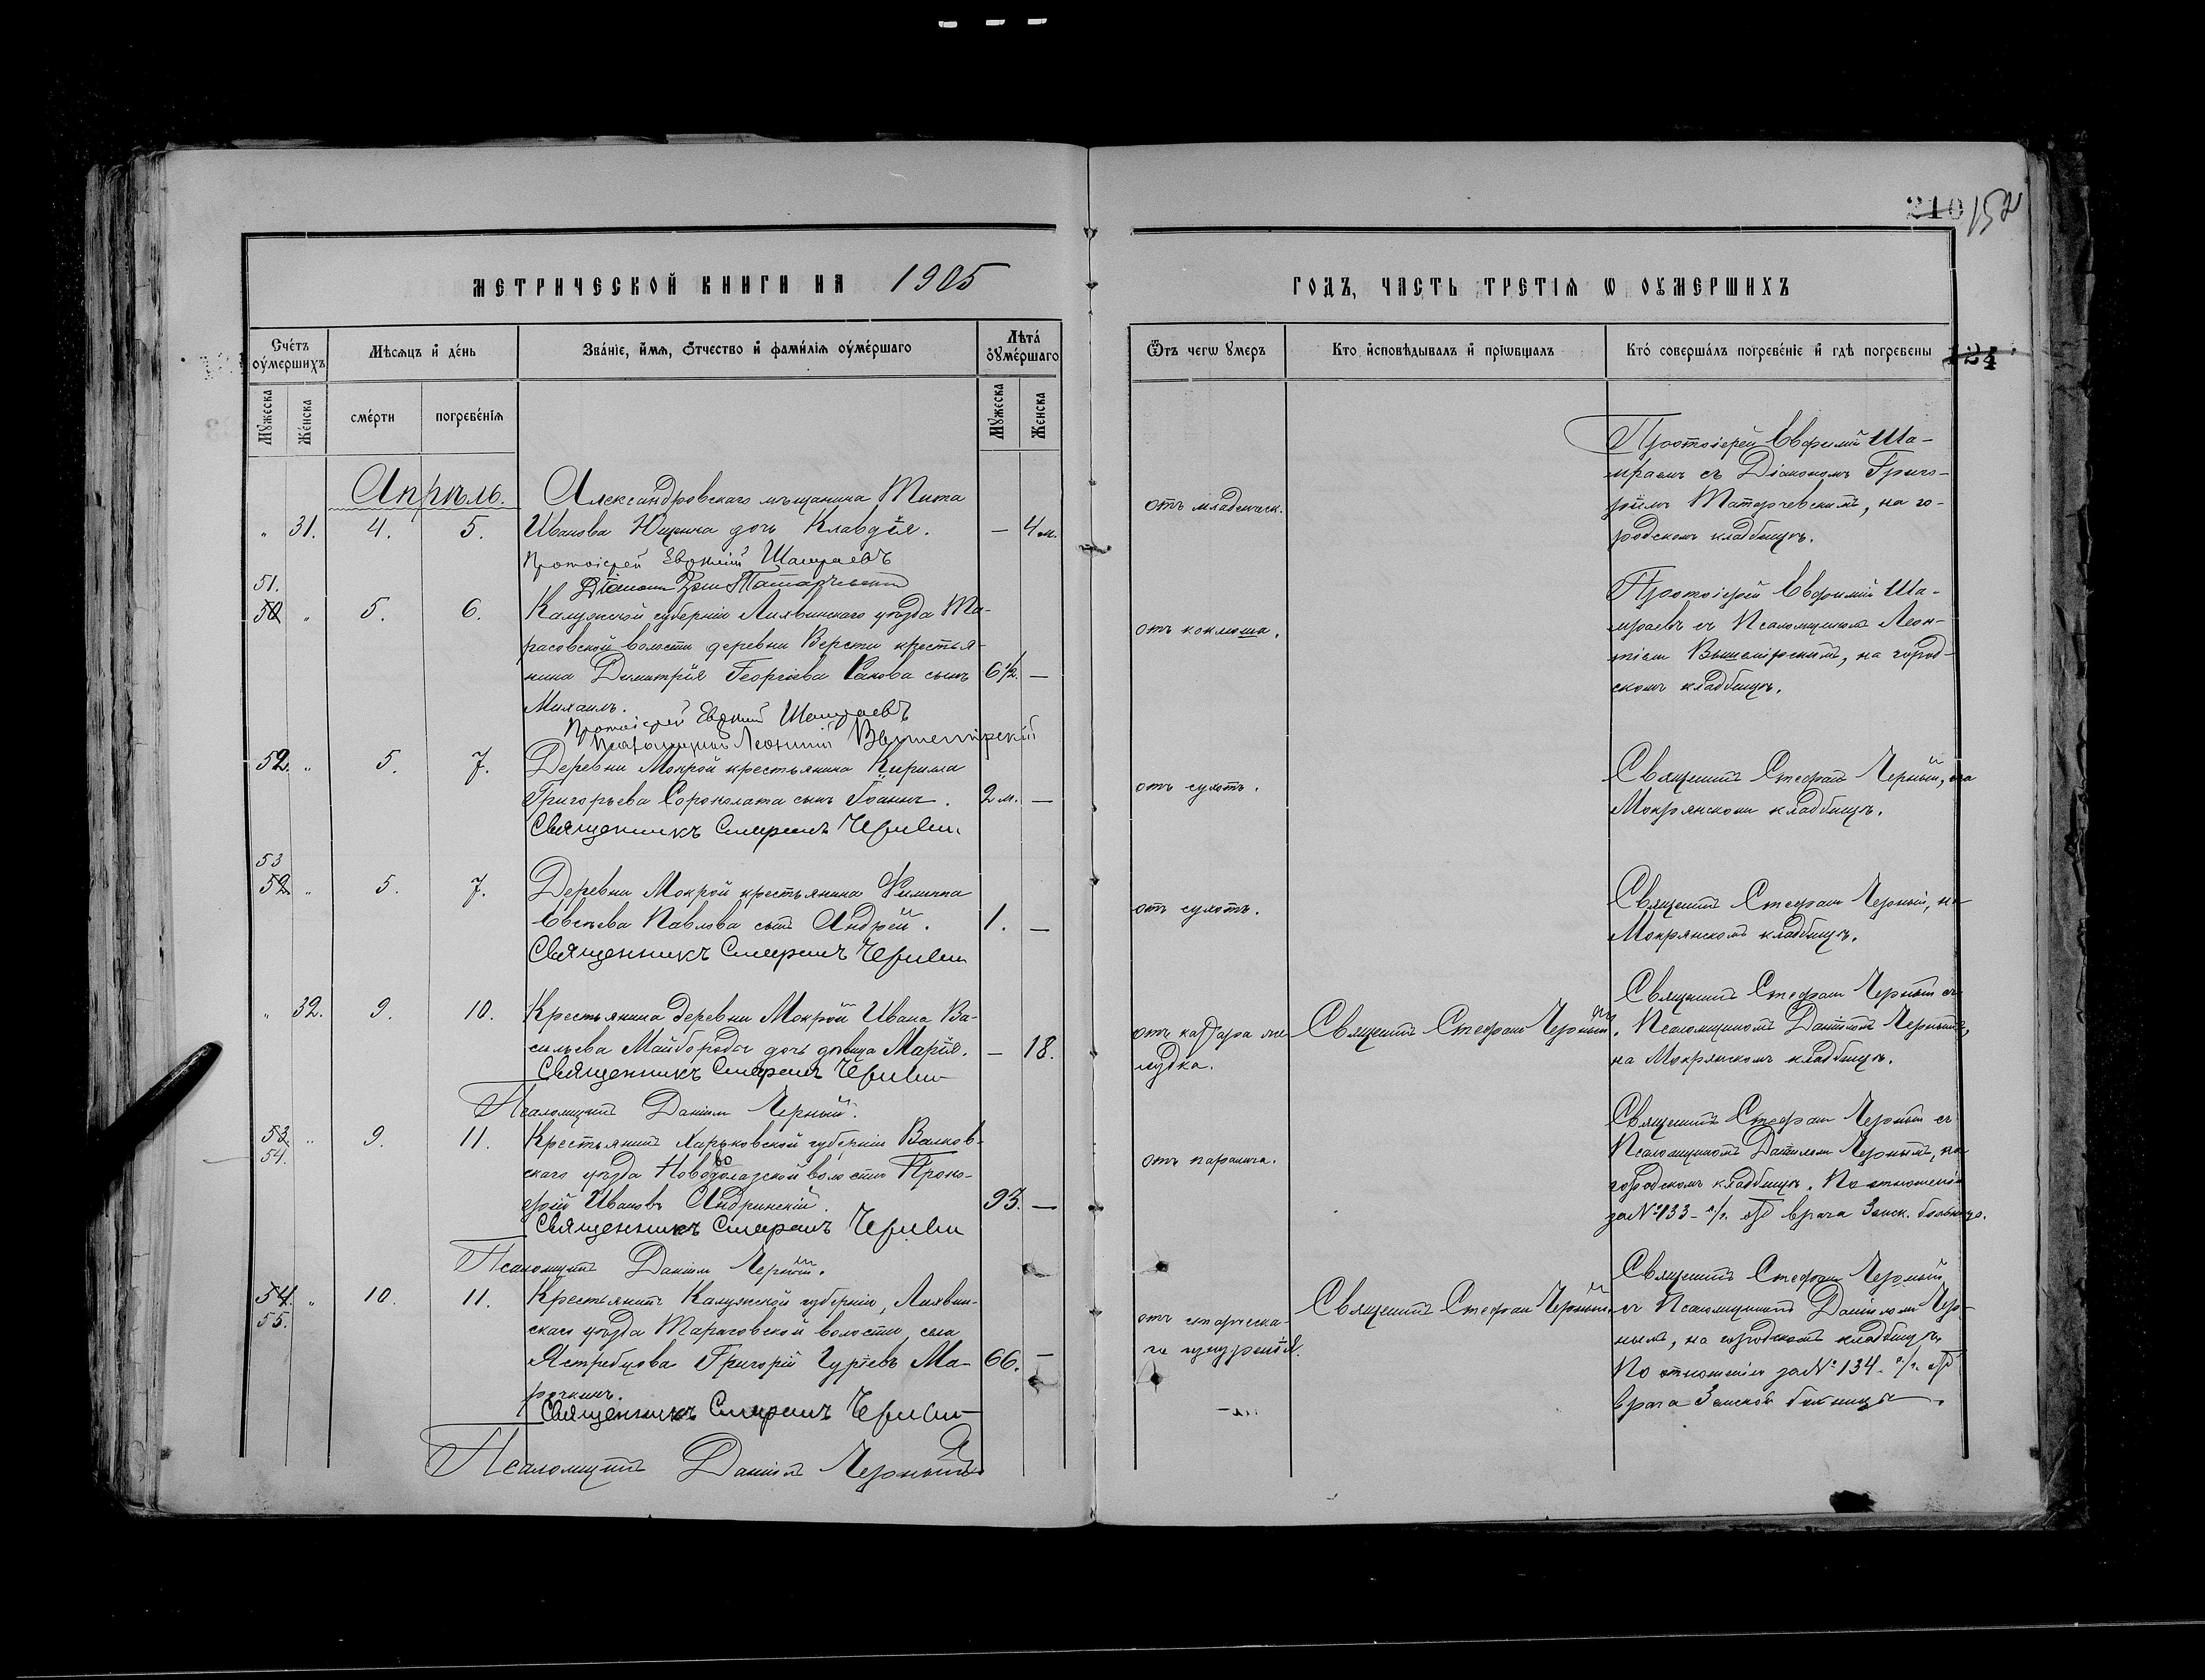 210 152
МЕТРИЧЕСКОЙ КНИГИ НА 1905
ГОДЪ, ЧАСТЬ ТРЕТІЯ Ѡ ОУМЕРШИХЪ
124
Счётъ оумершихъ
Мѣсяцъ и день
Званіе, имя, отчество и фамилія оумершаго
Лѣта оумершаго
Мужеска
Женска
смерти
погребенія
Мужеска
Женска
Ѿтъ чегѡ умеръ
Кто исповѣдывалъ и пріѡбщалъ
Кто совершалъ погребеніе и гдѣ погребены
Апрѣль.
" 31. 4. 5.
Александровскаго мѣщанина Тита
Иванова Ющенка дочь Клавдія. — 4 м.
Протоіерей Евфимій Шамраевъ
Діаконъ Григ. Татарчевскій
отъ младенческ.
Протоіерей Евфимій Ша-
мраевъ съ Діакономъ Григо-
ріемъ Татарчевскимъ, на го-
родскомъ кладбищѣ.
51.
50 " 5. 6.
Калужской губерніи Лихвинскаго уѣзда Та-
расовской волости деревни Версти крестья-
нина Димитрія Георгіева Ракова сынъ 6½. —
Михаилъ.
Протоіерей Евфимій Шамраевъ
Псаломщикъ Леонтій Вышемірскій
отъ коклюша.
Протоіерей Евфимій Ша-
мраевъ съ Псаломщикомъ Леон-
тіемъ Вышемірскимъ, на город-
скомъ кладбищѣ.
52. " 5. 7.
Деревни Мокрой крестьянина Кирилла
Григорьева Сороколата сынъ Іоаннъ. 2 м. —
Священникъ Стефанъ Черный
отъ сухотъ.
Священникъ Стефанъ Черный, на
Мокрянскомъ кладбищѣ.
53
52 " 5. 7.
Деревни Мокрой крестьянина Филиппа
Евсѣева Павлова сынъ Андрей. 1. —
Священникъ Стефанъ Черный
отъ сухотъ.
Священникъ Стефанъ Черный, на
Мокрянскомъ кладбищѣ.
" 32. 9. 10.
Крестьянина деревни Мокрой Ивана Ва-
сильева Майбороды дочь дѣвица Марія. — 18.
Священникъ Стефанъ Черный
Псаломщикъ Даніилъ Черный.
отъ катара же-
лудка.
Священникъ Стефанъ Черный.
Священникъ Стефанъ Черный съ
Псаломщикомъ Даніиломъ Чернымъ,
на Мокрянскомъ кладбищѣ.
53. " 9. 11.
54.
Крестьянинъ Харьковской губерніи Валков-
скаго уѣзда Нововодолазской волости Проко-
фій Ивановъ Андринскій. 93. —
Священникъ Стефанъ Черный
Псаломщикъ Даніилъ Черный.
отъ паралича.
Священникъ Стефанъ Черный съ
Псаломщикомъ Даніиломъ Чернымъ, на
городскомъ кладбищѣ. По отношенію
за № 133 врача Земск. больницы.
54. " 10. 11.
55.
Крестьянинъ Калужской губерніи, Лихвин-
скаго уѣзда Тарасовской волости, села
Ястребцова Григорій Гурьевъ Ма- 66. —
рочкинъ.
Священникъ Стефанъ Черный
Псаломщикъ Даніилъ Черный
отъ старческа-
го изнуренія.
Священникъ Стефанъ Черный.
Священникъ Стефанъ Черный
съ Псаломщикомъ Даніиломъ Чер-
нымъ, на городскомъ кладбищѣ.
По отношенію за № 134
врача Земской больницы.